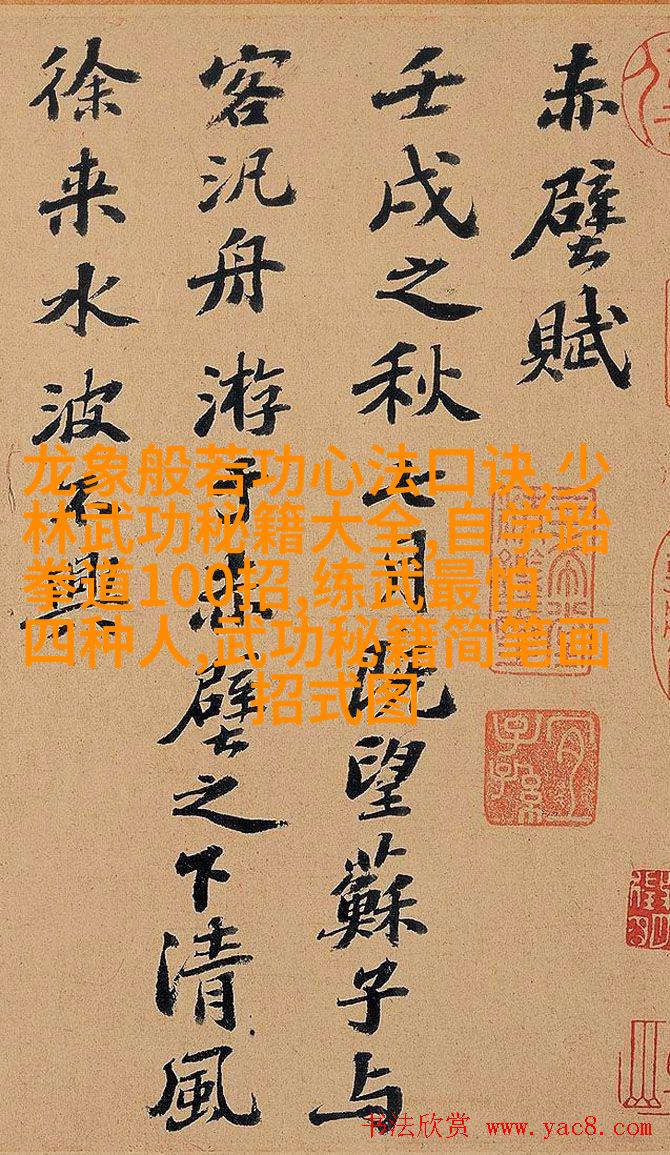 赤壁賦
壬戌之秋七月既望蘇子与
客汎舟游于赤壁之下清風
徐来水波不興
龙象般若功心法口诀,少
林武功秘籍大全,自学跆
拳道100招,练武最怕
四种人,武功秘籍简笔画
招式图
书法欣赏 www.yac8.com